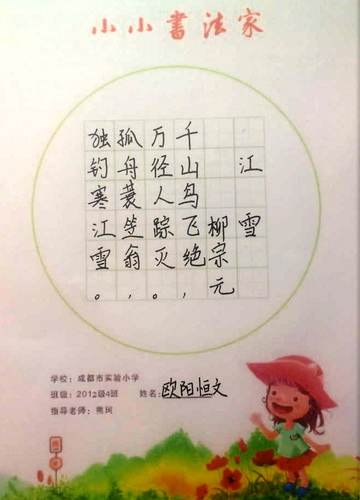 小小書法家
江雪
柳宗元
千山鸟飞绝，
万径人踪灭。
孤舟蓑笠翁，
独钓寒江雪。
学校：成都市实验小学
班级：2012级4班
姓名：欧阳恒文
指导老师：熊珂